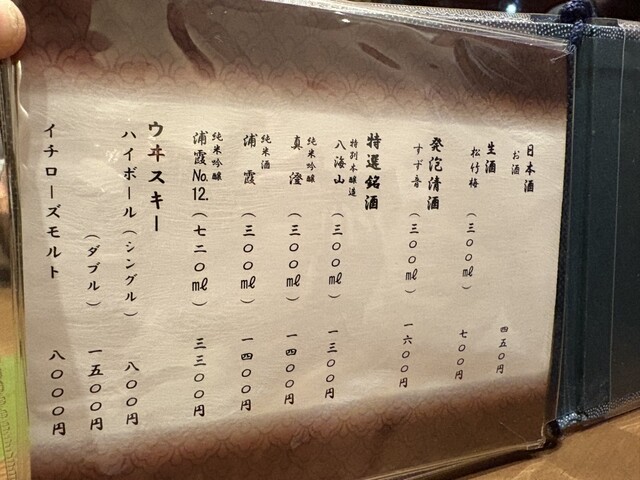 日本酒
お酒 四五〇円
生酒
松竹梅(三〇〇㎖) 七〇〇円
発泡清酒
すず音(三〇〇㎖) 一六〇〇円
特選銘酒
特別本醸造
八海山(三〇〇㎖) 一三〇〇円
純米吟醸
真澄(三〇〇㎖) 一四〇〇円
純米酒
浦霞(三〇〇㎖) 一四〇〇円
純米吟醸
浦霞No.12.(七二〇㎖) 三三〇〇円
ウヰスキー
ハイボール(シングル) 八〇〇円
(ダブル) 一五〇〇円
イチローズモルト 八〇〇〇円